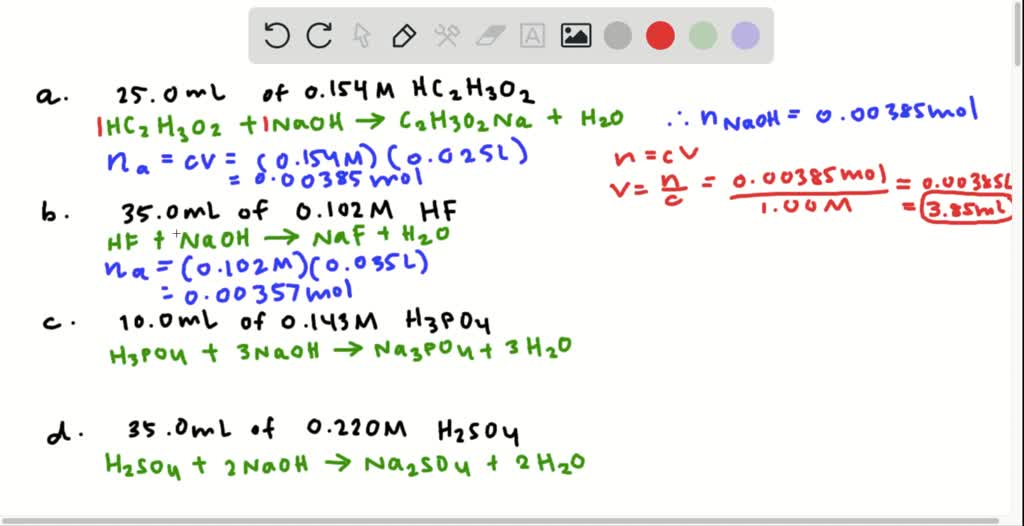 a. 25.0mL of 0.154M HC2H3O2
1HC2H3O2 + 1NaOH → C2H3O2Na + H2O
∴ nNaOH = 0.00385mol
na = cV = (0.154M)(0.025L)
= 0.00385mol
n = cV
V = n/c = 0.00385mol/1.00M = 0.00385L
= 3.85mL
b. 35.0mL of 0.102M HF
HF + NaOH → NaF + H2O
na = (0.102M)(0.035L)
= 0.00357mol
c. 10.0mL of 0.143M H3PO4
H3PO4 + 3NaOH → Na3PO4 + 3H2O
d. 35.0mL of 0.220M H2SO4
H2SO4 + 2NaOH → Na2SO4 + 2H2O